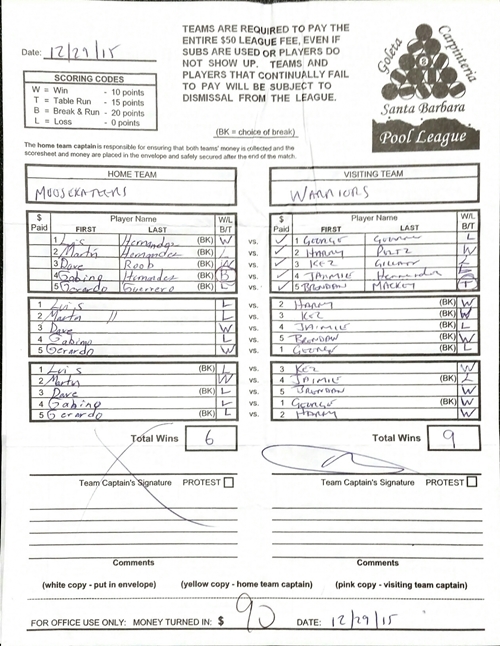 Date: 12/29/15
TEAMS ARE REQUIRED TO PAY THE
ENTIRE $50 LEAGUE FEE, EVEN IF
SUBS ARE USED OR PLAYERS DO
NOT SHOW UP. TEAMS AND
PLAYERS THAT CONTINUALLY FAIL
TO PAY WILL BE SUBJECT TO
DISMISSAL FROM THE LEAGUE.
Goleta Carpinteria
Santa Barbara
Pool League
SCORING CODES
W = Win - 10 points
T = Table Run - 15 points
B = Break & Run - 20 points
L = Loss - 0 points
(BK = choice of break)
The home team captain is responsible for ensuring that both teams' money is collected and the
scoresheet and money are placed in the envelope and safely secured after the end of the match.
HOME TEAM VISITING TEAM
MOOSEKATEERS WARRIORS
$ Paid Player Name FIRST LAST W/L B/T $ Paid Player Name FIRST LAST W/L B/T
1 Luis Hernandez (BK) W vs. ✓ 1 GEORGE L
2 Martin Hernandez (BK) vs. ✓ 2 HARRY W
3 Dave Roob (BK) W vs. ✓ 3 KEZ L
4 Gabino Hernandez (BK) B vs. ✓ 4 JAIMIE Hernandez L
5 Gerardo Guerrero (BK) L vs. ✓ 5 BRENDAN MACKEY T
1 Luis L vs. 2 HARRY (BK) W
2 Martin // L vs. 3 KEZ (BK) W
3 Dave W vs. 4 JAIMIE (BK) L
4 Gabino L vs. 5 BRENDAN (BK) W
5 Gerardo W vs. 1 GEORGE (BK) L
1 Luis (BK) L vs. 3 KEZ W
2 Martin W vs. 4 JAIMIE (BK) L
3 Dave (BK) L vs. 5 BRENDAN W
4 Gabino L vs. 1 GEORGE (BK) W
5 Gerardo (BK) L vs. 2 HARRY W
Total Wins 6 Total Wins 9
Team Captain's Signature PROTEST Team Captain's Signature PROTEST
Comments Comments
(white copy - put in envelope) (yellow copy - home team captain) (pink copy - visiting team captain)
FOR OFFICE USE ONLY: MONEY TURNED IN: $ 90 DATE: 12/29/15